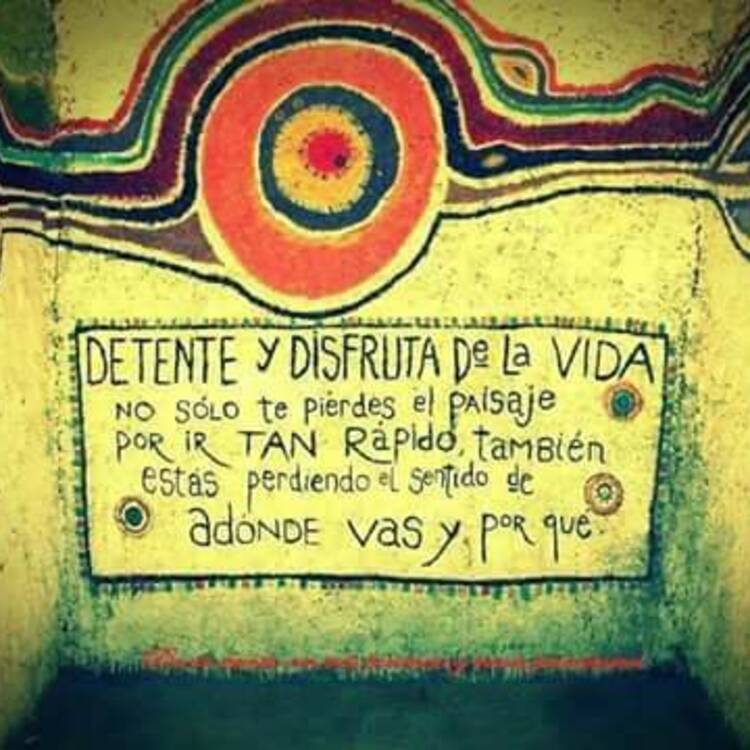 DETENTE Y DISFRUTA De La VIDA
NO SÓLO te pierdes el PAISaje
POR IR TAN RáPIDO, también
estás perdiendo el sentido de
adónde vas y por que.